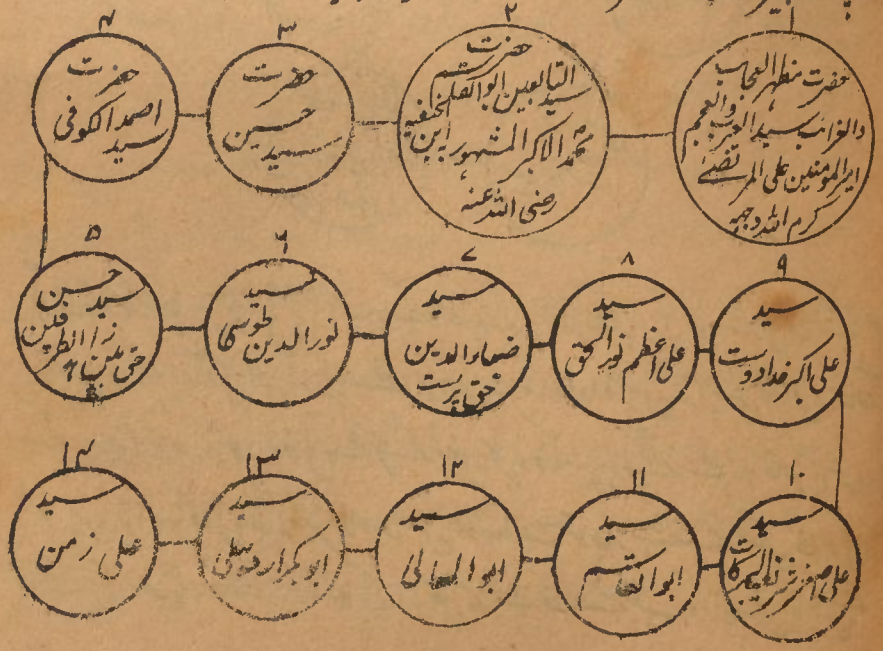 ۱
حضرت مظہر العجائب
والغرائب سید العرب والعجم
امیر المومنین علی المرتضیٰ
کرم اللہ وجہہ
۲
حضرت
سید التابعین ابو القاسم
محمد الاکبر المشہور بہ ابن الحنفیہ
رضی اللہ عنہ
۳
حضرت
سید حسین
۴
حضرت
سید احمد الکوفی
۵
سید حسن
۶
سید
نور الدین طوسی
۷
سید
ضیاء الدین
حق پرست
۸
سید
علی اعظم نور الحق
۹
سید
علی اکبر خدا دوست
۱۰
سید
علی اصغر
۱۱
سید
ابو القاسم
۱۲
سید
ابو المعالی
۱۳
سید
ابوبکر
۱۴
سید
علی زمن